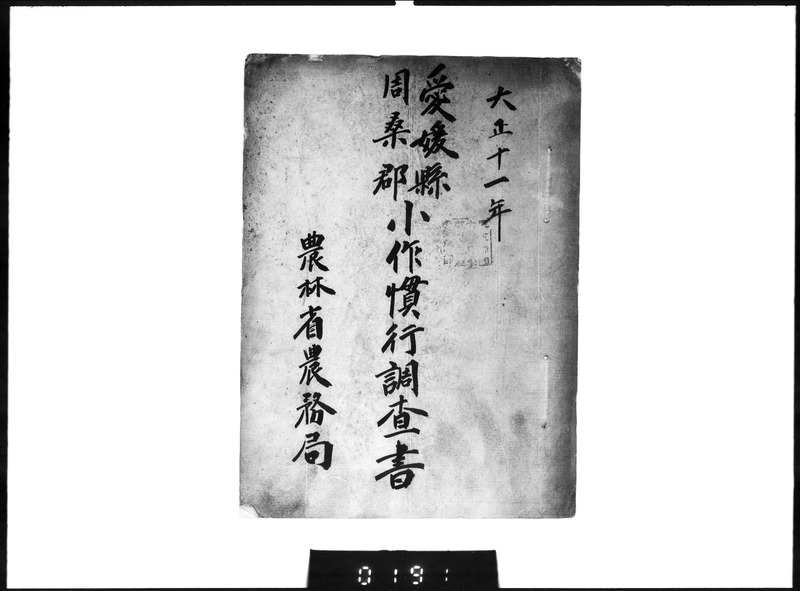 大正十一年
愛媛縣
周桑郡
小作慣行調査書
農林省農務局
0191